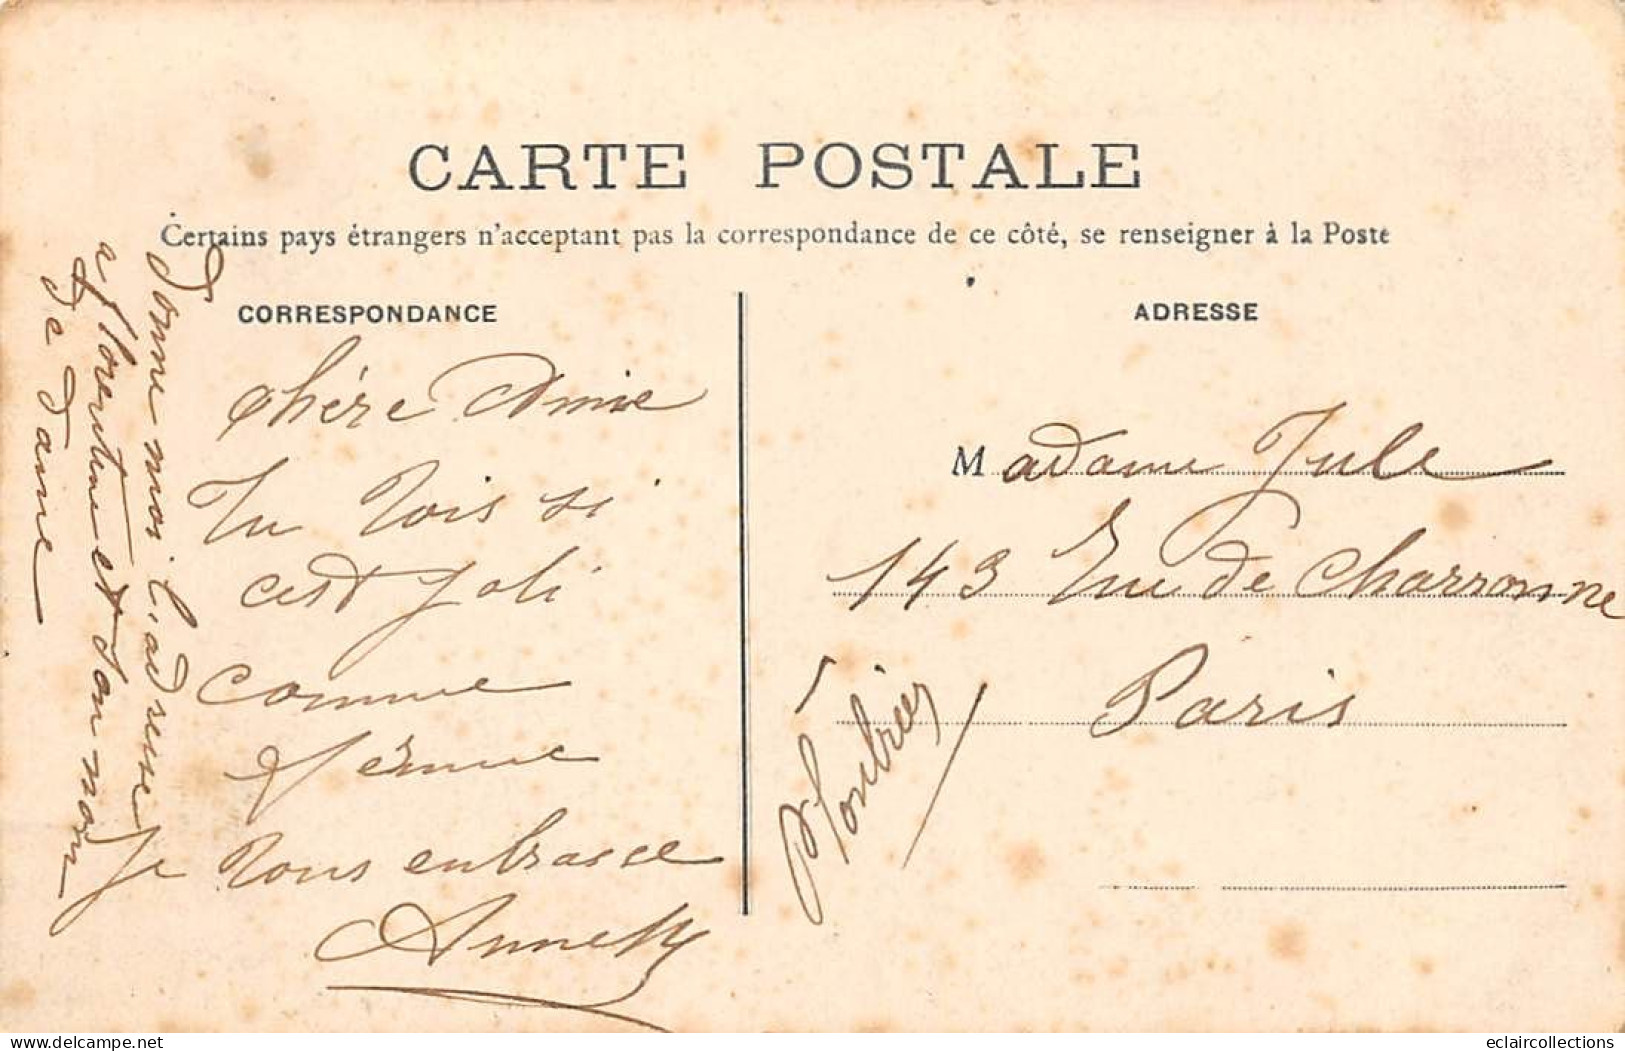 CARTE POSTALE
Certains pays étrangers n'acceptant pas la correspondance de ce côté, se renseigner à la Poste
CORRESPONDANCE
ADRESSE
chère Amie
Tu vois si
cest joli
comme
férme
Je vous embrasse
Annette
Donne moi l'adresse
a florentine et son nom
de dame
Madame Jule
143 Rue de Charronne
Paris
delcampe.net
eclaircollections